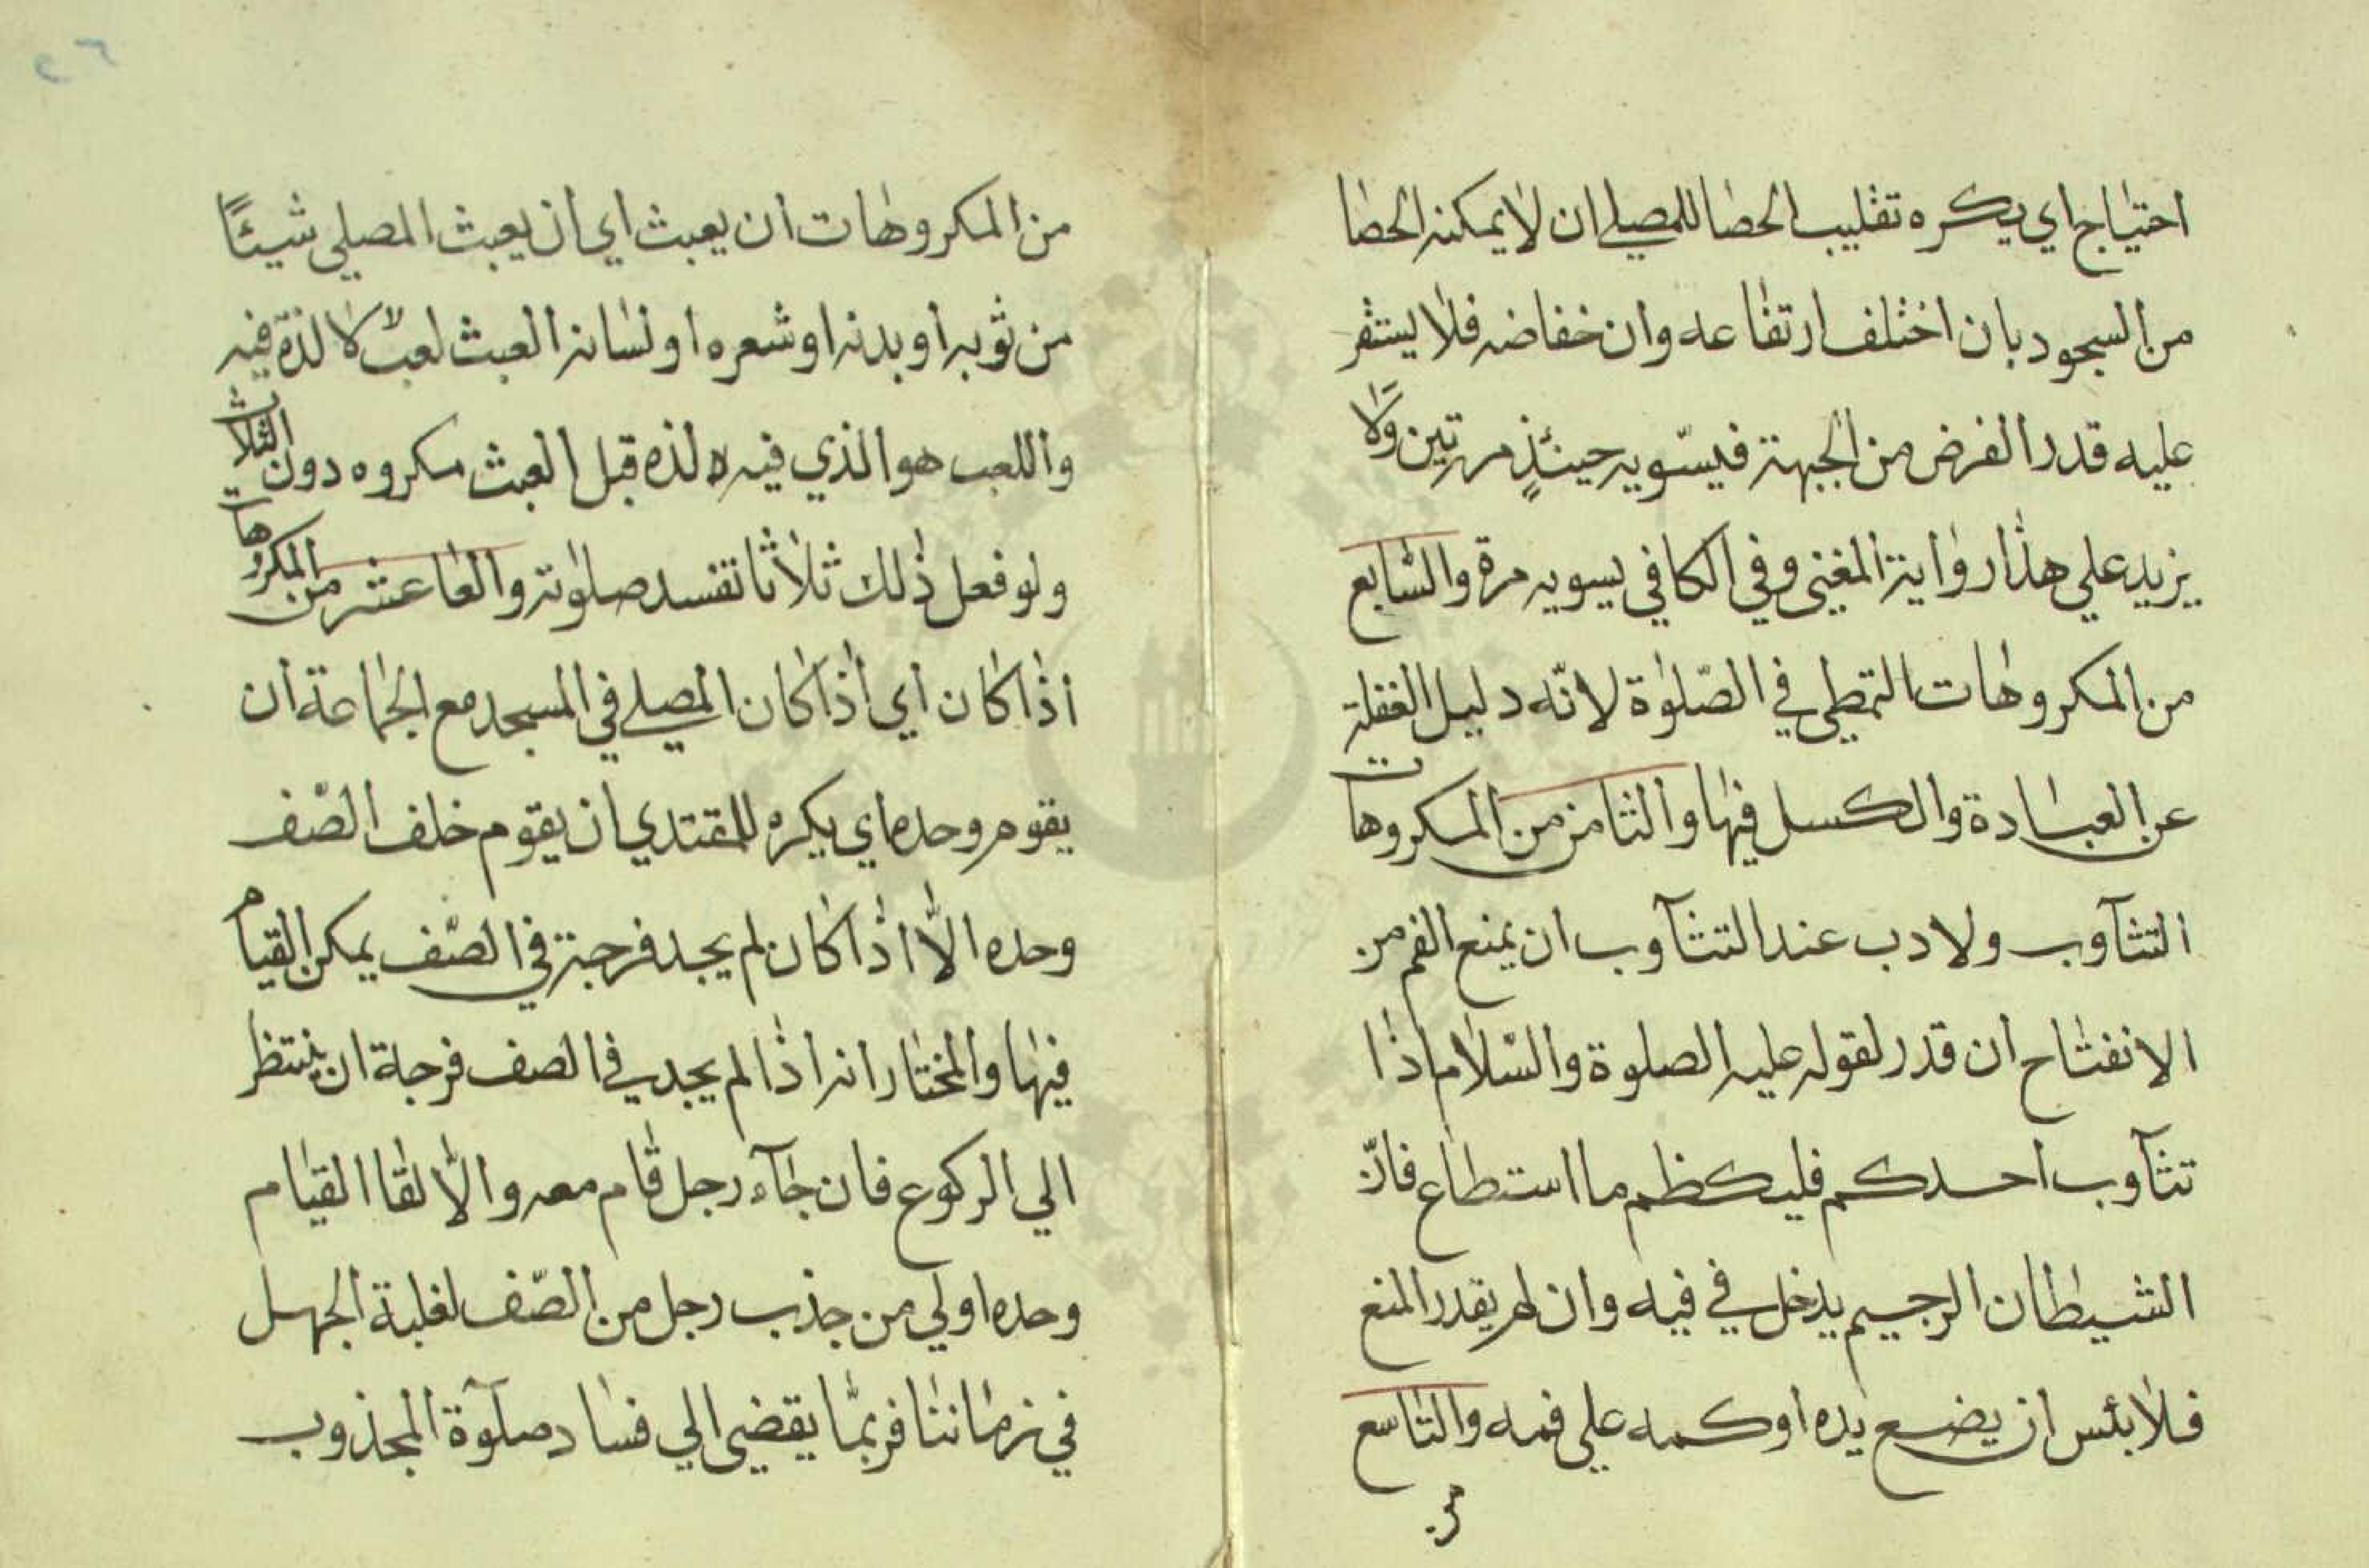 احتياج اي يكره تقليب الحصا للمصلي ان لا يمكنه الحصا
من السجود بان اختلف ارتفاعه وان خفاضه فلا يستقر
عليه قدر الفرض من الجبهة فيسّويه حينئذٍ مرتين ولا
يزيد علي هذا رواية المغني وفي الكافي يسويه مرة والسابع
من المكروهات التمطي في الصّلوٰة لانّه دليل الغفلة
عن العبادة والكسل فيها والثامن من المكروهات
التثآوب ولادب عند التثآوب ان يمنع الفم من
الانفتاح ان قدر لقوله عليه الصلوة والسّلام اذا
تثآوب احدكم فليكظم ما استطاع فانّ
الشيطان الرجيم يدخل في فيه وان لم يقدر المنع
فلا بئس ان يضع يده او كمه علي فمه والتاسع
من
من المكروهات ان يعبث اي ان يعبث المصلي شيئًا
من ثوبه او بدنه او شعره او لسانه العبث لعب لا لذة فيه
واللعب هو الذي فيه لذه قبل العبث مكروه دون الثلاث
ولو فعل ذلك ثلاثا تفسد صلوٰته والعاعشر من المكروهات
اذا كان اي اذا كان المصلي في المسجد مع الجماعة ان
يقوم وحده اي يكره للمقتدي ان يقوم خلف الصّف
وحده الّا اذا كان لم يجد فرجة في الصّف يمكن القيام
فيها والمختار انه اذا لم يجد في الصف فرجة ان ينتظر
الي الركوع فان جآء رجل قام معه والّا لقا القيام
وحده اولي من جذب رجل من الصّف لغلبة الجهل
في زماننا فربمّا يقضي الي فساد صلوٓة المجذوب